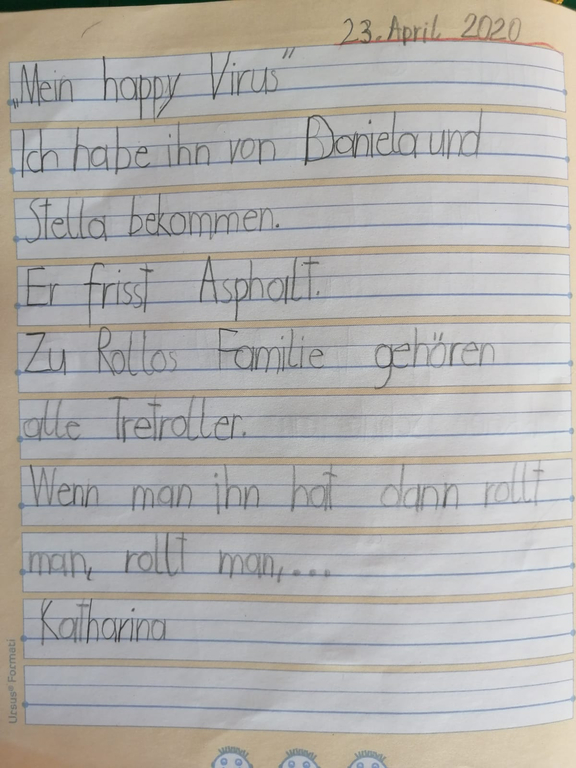 23. April 2020
„Mein happy Virus"
Ich habe ihn von Daniela und
Stella bekommen.
Er frisst Asphalt.
Zu Rollos Familie gehören
alle Tretroller.
Wenn man ihn hat dann rollt
man, rollt man,...
Katharina
Ursus® Formati